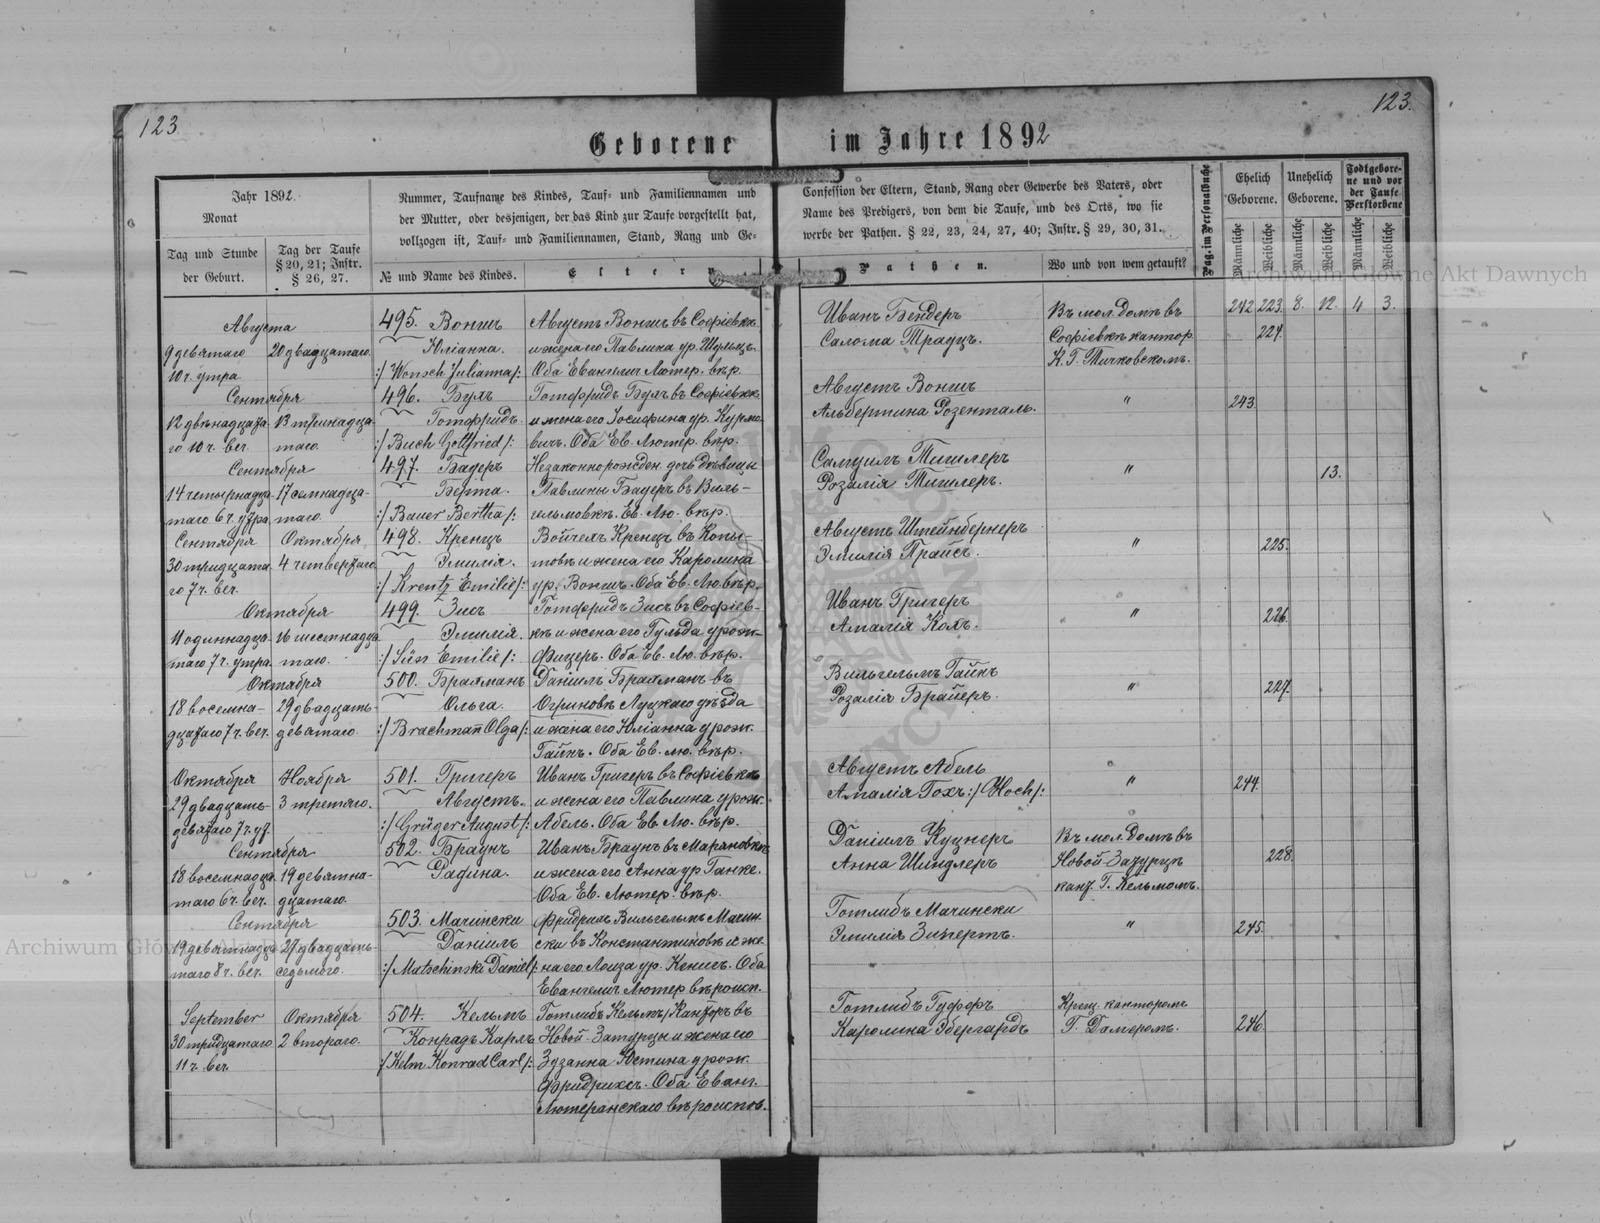 123
123.
Geborene im Jahre 1892
Jahr 1892.
Monat
Tag und Stunde
der Geburt.
Tag der Taufe
§ 20, 21; Instr.
§ 26, 27.
Nummer, Taufname des Kindes, Tauf- und Familiennamen und
der Mutter, oder desjenigen, der das Kind zur Taufe vorgestellt hat,
vollzogen ist, Tauf- und Familiennamen, Stand, Rang und Ge-
№ und Name des Kindes.
Eltern
Confession der Eltern, Stand, Rang oder Gewerbe des Vaters, oder
Name des Predigers, von dem die Taufe, und des Orts, wo sie
werbe der Pathen. § 22, 23, 24, 27, 40; Instr. § 29, 30, 31.
Pathen.
Wo und von wem getauft?
Pag. im Personalbuche
Ehelich
Geborene.
Unehelich
Geborene.
Todtgebore-
ne und vor
der Taufe
Verstorbene
Männliche
Weibliche
Männliche
Weibliche
Männliche
Weibliche
242 223. 8. 12. 4 3.
Августа
9 девятаго
10 ч. утра
20 двадцатаго.
495. Воншъ
Юліанна.
:/ Wonsch Julianna /:
Августъ Воншъ въ Софіевкѣ
и жена его Павлина ур. Шульцъ.
Оба Евангелич Лютер. вѣр.
Иванъ Бендеръ
Салома Традцъ.
Въ мол. домѣ въ
Софіевкѣ кантор.
К. Г. Тичковскомъ.
224.
Сентября
12 двѣнадцата
го 10 ч. веч.
13 тринадца-
таго.
496. Бухъ
Готфридъ.
:/ Buch Gottfried /:
Готфридъ Бухъ въ Софіевкѣ
и жена его Іосифина ур. Курмо
вичъ. Оба Ев. Лютер. вѣр.
Августъ Воншъ
Альбертина Розенталь.
"
243.
Сентября
14 четырнадца
таго 6 ч. утра
17 семнадца-
таго.
497. Бауеръ
Берта.
:/ Bauer Bertha /:
Незаконнорожден. дочь дѣвицы
Павлины Бауеръ въ Виль-
гельмовкѣ. Ев. Лю. вѣр.
Самуилъ Тишлеръ
Розалія Тишлеръ.
"
13.
Сентября
30 тридцата
го 7 ч. веч.
Октября
4 четвертаго
498. Кренцъ
Эмилія.
:/ Krentz Emilie /:
Войчехъ Кренцъ въ Копы-
товѣ и жена его Каролина
ур. Воншъ. Оба Ев. Лю. вѣр.
Августъ Штейнбернеръ
Эмилія Прайсъ.
"
225.
Октября
11 одиннадца-
таго 7 ч. утра.
16 шестнадца
таго.
499. Зисъ
Эмилія.
:/ Süss Emilie /:
Готфридъ Зисъ въ Софіев-
кѣ и жена его Гульда урож-
Фицеръ. Оба Ев. Лю. вѣр.
Иванъ Григеръ
Амалія Колъ.
"
226.
Октября
18 восемна-
дцатаго 7 ч. веч.
29 двадцать-
девятаго.
500. Брахманъ
Ольга.
:/ Brachmañ Olga /:
Даніилъ Брахманъ въ
Огриновѣ Луцкаго уѣзда
и жена его Юліанна урож.
Гайнъ. Оба Ев. лю. вѣр.
Вильгельмъ Гайнъ
Розалія Брайеръ.
"
227.
Октября
29 двадцать-
девятаго 7 ч. ут.
Ноября
3 третяго.
501. Григеръ
Августъ.
:/ Grüger August /:
Иванъ Григеръ въ Софіевкѣ
и жена его Павлина урож.
Абель. Оба Ев. Лю. вѣр.
Августъ Абель
Амалія Гохъ :/ Hoch /:
"
244.
Сентября
18 восемнадца
таго 6 ч. веч.
19 девятна-
дцатаго.
502. Браунъ
Иванъ Браунъ въ Маряновкѣ
и жена его Анна ур Ганке.
Оба Ев. Лютер. вѣр.
Даніилъ Куцнеръ
Анна Шиндлеръ
Въ мол. домѣ въ
Новой-Затурцѣ
кант. Г. Кельмомъ.
228.
Сентября
19 девятнадца
таго 8 ч. веч.
27 двадцать-
седьмого.
503. Мачински
Даніилъ
:/ Matschinski Daniel /:
Фридрихъ Вильгельмъ Мачин
ски въ Константиновѣ и же
на его Лоиза ур. Кенигъ. Оба
Евангелич Лютер вѣроисп.
Готлибъ Мачински
Эмилія Зипертъ.
"
245.
September
30 тридцатаго
11 ч. веч
Октября
2 втораго.
504. Кельмъ
Конрадъ Карлъ
:/ Kelm Konrad Carl /:
Готлибъ Кельмъ, Канторъ въ
Новой-Затурцы и жена его
Зузанна Юстина урож.
Фридрихсъ. Оба Еванг.
Лютеранскаго вѣроиспов.
Готлибъ Гуффъ
Каролина Эбергардъ
Крещ. канторомъ
Г. Дамеромъ.
246.
Archiwum Główne Akt Dawnych
Archiwum Główne Akt Dawnych